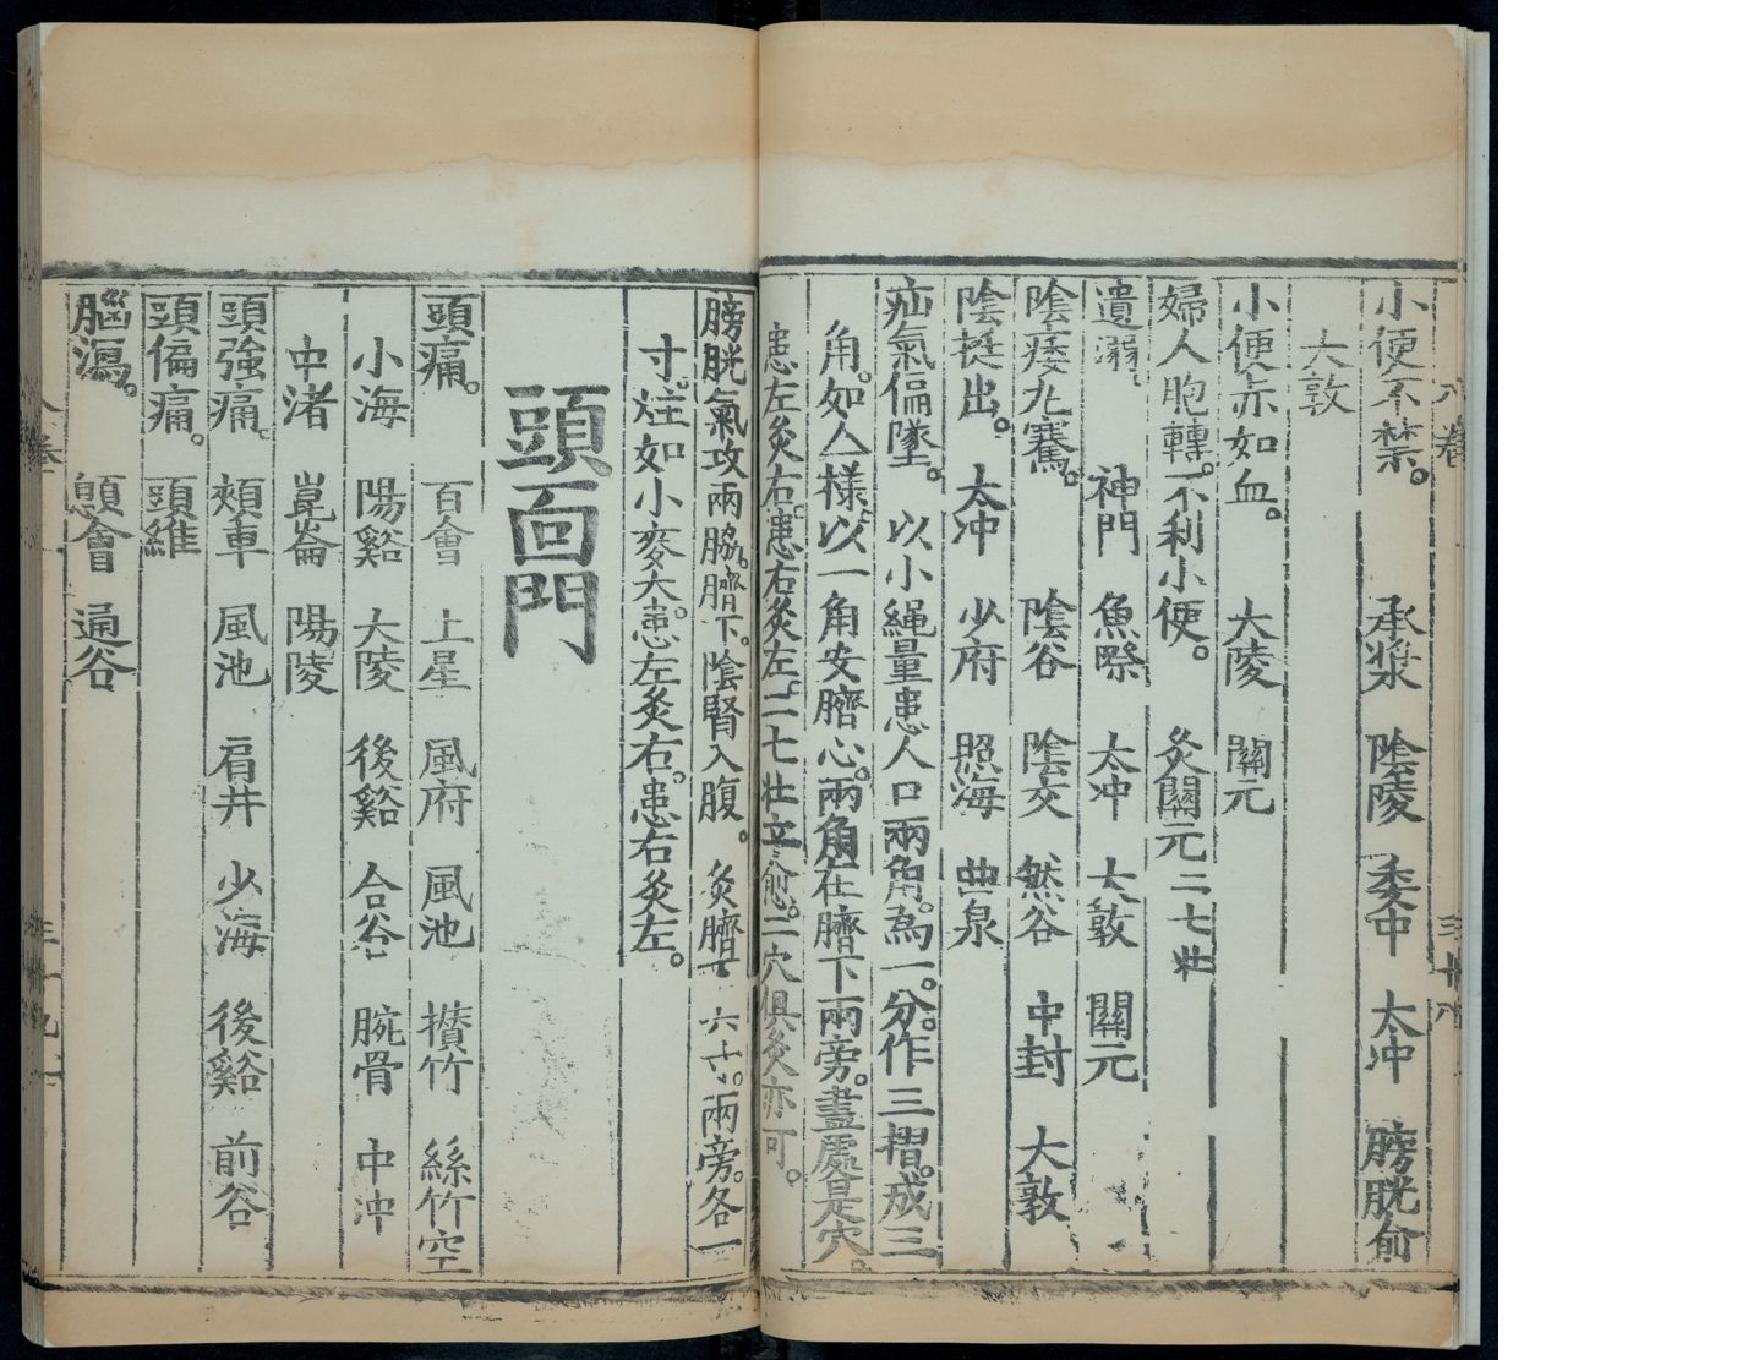 小便不禁。 承漿 陰陵 委中 太冲 膀胱俞
大敦
小便赤如血。 大陵 關元
婦人胞轉。不利小便。 灸關元二七壯
遺溺。 神門 魚際 太冲 大敦 關元
陰痿丸騫。 陰谷 陰交 然谷 中封 大敦
陰挺出。 太冲 少府 照海 曲泉
疝氣偏墜。 以小繩量患人口兩角。為一。分。作三摺。成三
角。如厶樣。以一角安臍心。兩角在臍下兩旁。盡處是穴。
患左灸右。患右灸左。二七壯立愈。二穴俱灸亦可。
膀胱氣攻兩脇。臍下。陰腎入腹。 灸臍下六寸。兩旁。各一
寸。炷如小麥大。患左灸右。患右灸左。
頭面門
頭痛。 百會 上星 風府 風池 攅竹 絲竹空
小海 陽谿 大陵 後谿 合谷 腕骨 中冲
中渚 崑崙 陽陵
頭強痛。 頰車 風池 肩井 少海 後谿 前谷
頭偏痛。 頭維
腦瀉。 顖會 通谷